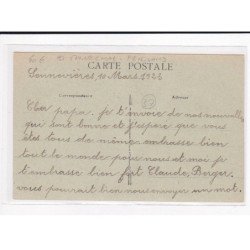 CARTE POSTALE
Sennevières, 10 Mars, 1923
Correspondance Adresse
Cher papa. je t'envoie de nos nouvelles
qui sont bonne et j'espère que vous
êtes tous de même embrasse bien
tout le monde pour nous et moi je
t'embrasse bien fort Claude, Berger.
vous pourrait bien nous envoyer un mot.